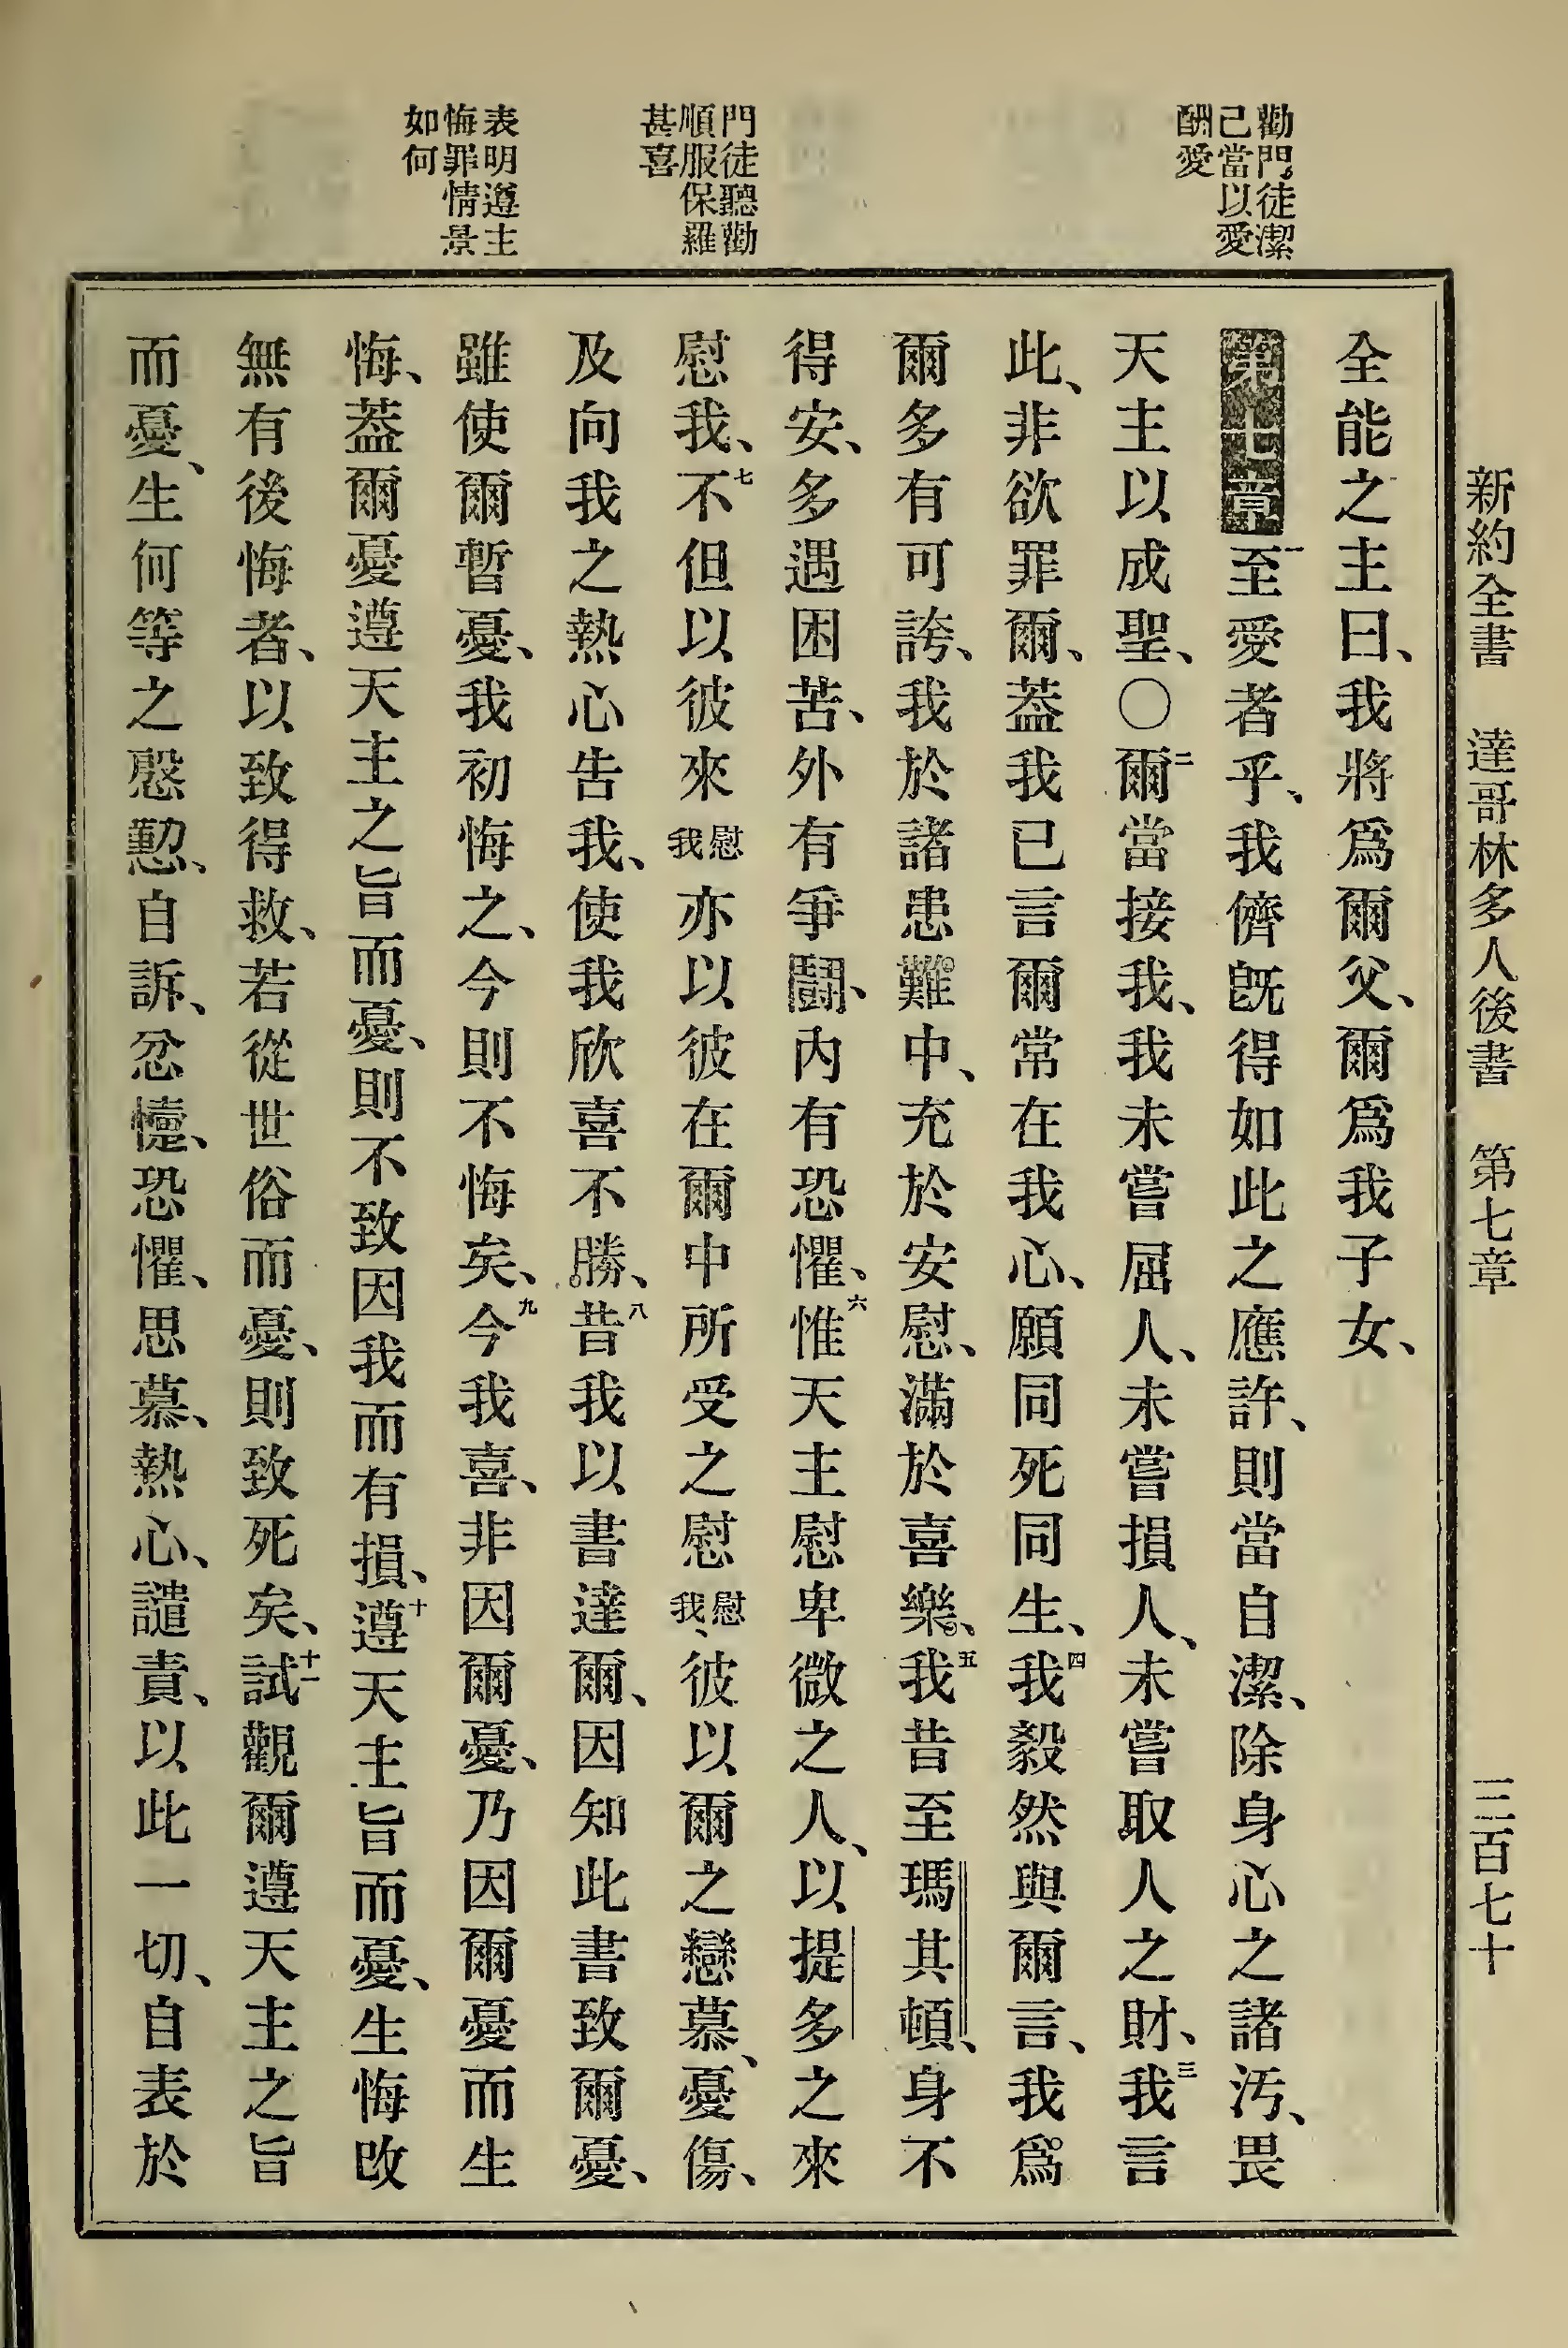 新約全書 達哥林多人後書 第七章 三百七十
勸門徒潔
己當以愛
酬愛
門徒聽勸
順服保羅
甚喜
表明遵主
悔罪情景
如何
全能之主曰、我將爲爾父、爾爲我子女、
第七章 一至愛者乎、我儕旣得如此之應許、則當自潔、除身心之諸汚、畏
天主以成聖、〇二爾當接我、我未嘗屈人、未嘗損人、未嘗取人之財、三我言
此、非欲罪爾、葢我已言爾常在我心、願同死同生、四我毅然與爾言、我爲
爾多有可誇、我於諸患難中、充於安慰、滿於喜樂、五我昔至瑪其頓、身不
得安、多遇困苦、外有爭鬬、內有恐懼、六惟天主慰卑微之人、以提多之來
慰我、七不但以彼來慰我亦以彼在爾中所受之慰慰我、彼以爾之戀慕、憂傷、
及向我之熱心告我、使我欣喜不勝、八昔我以書達爾、因知此書致爾憂、
雖使爾暫憂、我初悔之、今則不悔矣、九今我喜、非因爾憂、乃因爾憂而生
悔、葢爾憂遵天主之旨而憂、則不致因我而有損、十遵天主旨而憂、生悔改
無有後悔者、以致得救、若從世俗而憂、則致死矣、十一試觀爾遵天主之旨
而憂、生何等之慇懃、自訴、忿懥、恐懼、思慕、熱心、譴責、以此一切、自表於